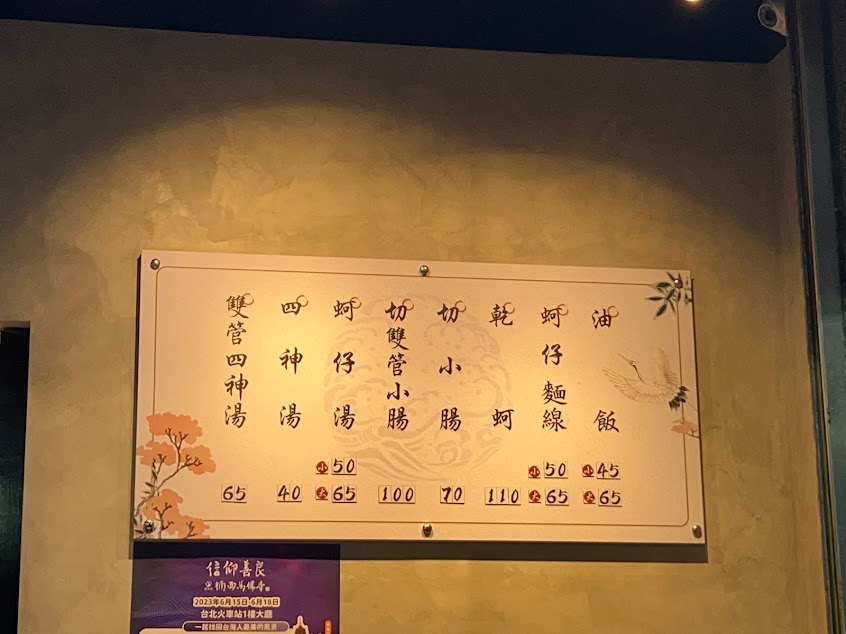 油飯
小45
大65
蚵仔麵線
小50
大65
乾蚵
110
切小腸
70
切雙管小腸
100
蚵仔湯
小50
大65
四神湯
40
雙管四神湯
65
信仰善良
2023年6月15日-6月18日
台北火車站1樓大廳
一起找回台灣人最美的風景